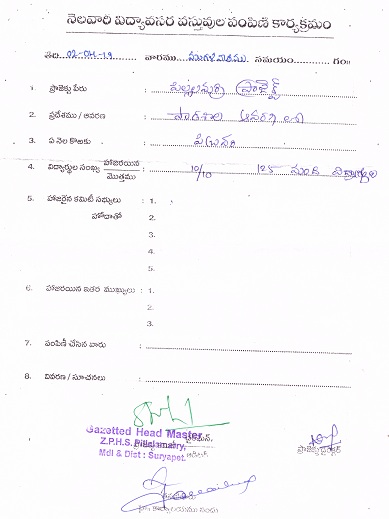 నెలవారి విద్యావసర వస్తువుల పంపిణి కార్యక్రమం
తేది 02-04-19 వారము మంగళవారము సమయం............గం॥
1. ప్రాజెక్టు పేరు : పిల్లలమర్రి ప్రాజెక్ట్
2. ప్రదేశము / ఆవరణ : పాఠశాల ఆవరణ లో
3. ఏ నెల కొఱకు :
4. విద్యార్థుల సంఖ్య హాజరయిన/మొత్తము : 10/10 125 మంది విద్యార్థులు
5. హాజరైన కమిటీ సభ్యులు : 1.
హోదాతో 2.
3.
4.
5.
6. హాజరయిన ఇతర ముఖ్యులు : 1.
2.
3.
7. పంపిణీ చేసిన వారు :
8. వివరణ / సూచనలు :
Gazetted Head Master,
Z.P.H.S. Pillalamarry,
Mdl & Dist : Suryapet.